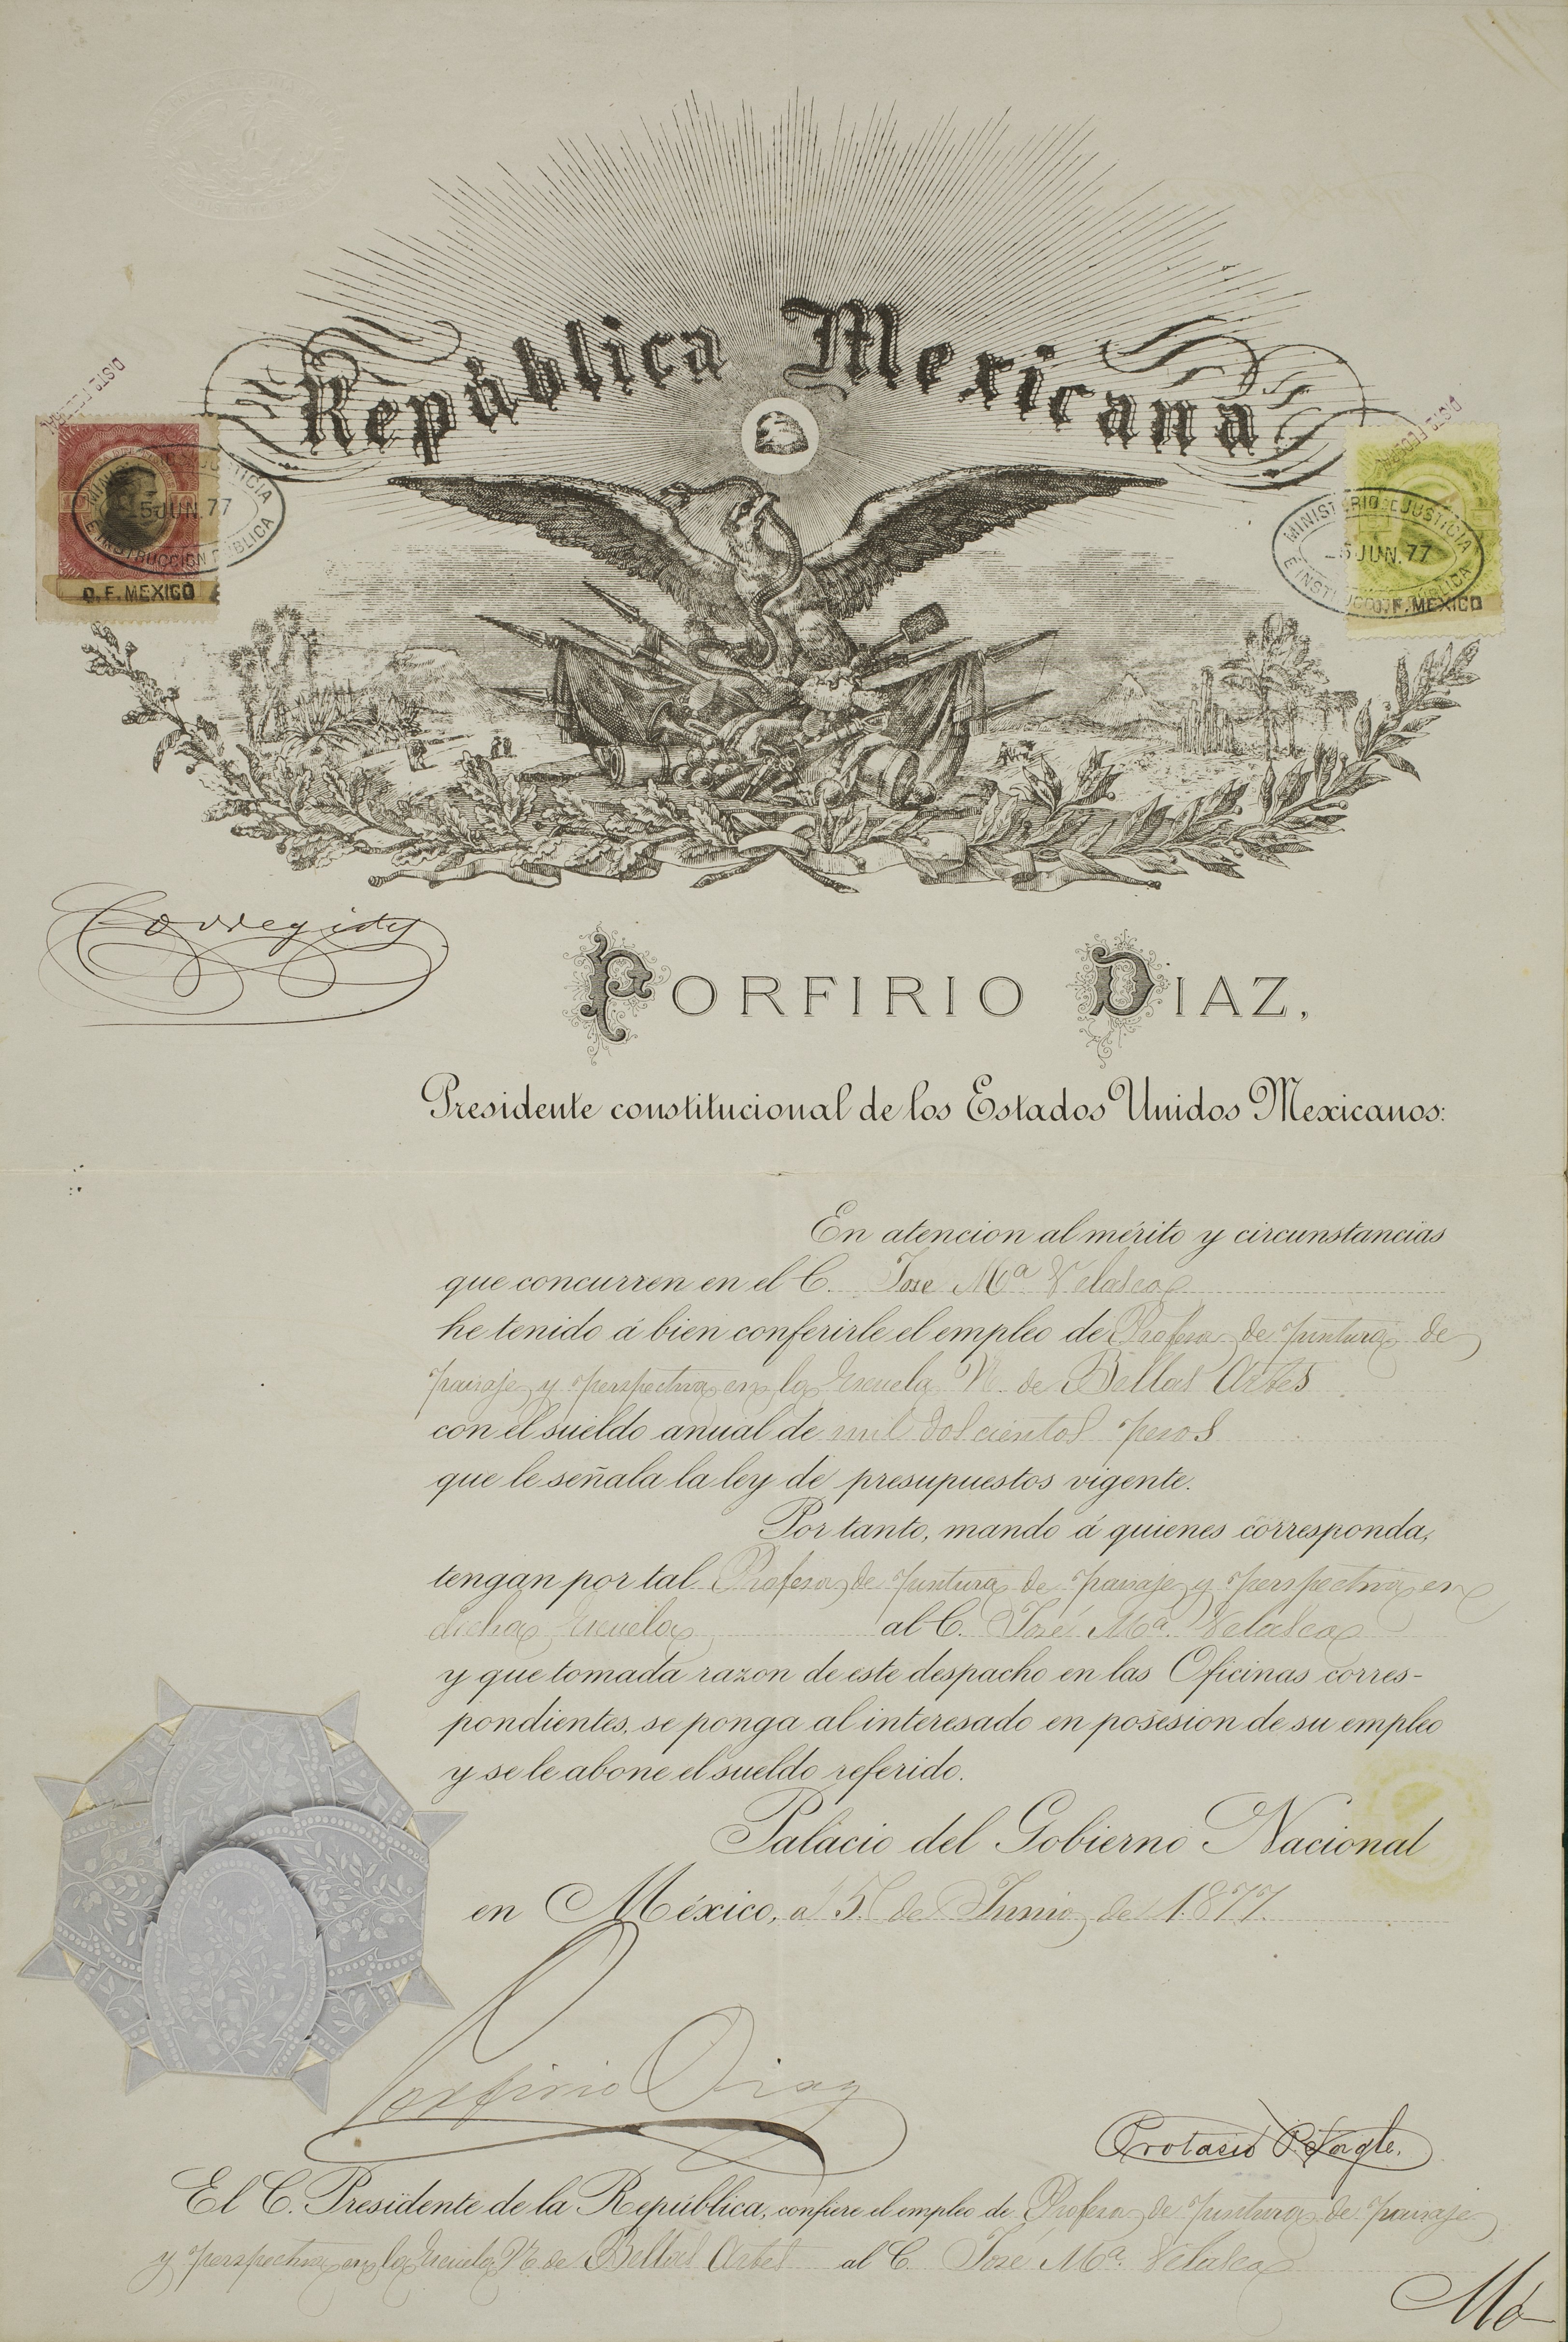 República Mexicana
DISTO FEDERAL
DISTO FEDERAL
MINISTERIO DE JUSTICIA
5 JUN. 77
E INSTRUCCION PUBLICA
D. F. MEXICO
MINISTERIO DE JUSTICIA
5 JUN. 77
E INSTRUCCION PUBLICA
D. F. MEXICO
PORFIRIO DIAZ,
Presidente constitucional de los Estados Unidos Mexicanos:
En atencion al mérito y circunstancias
que concurren en el C. Jose Ma. Velasco
he tenido á bien conferirle el empleo de Profesor de pintura de
paisaje y perspectiva en la Escuela N. de Bellas Artes
con el sueldo anual de mil doscientos pesos
que le señala la ley de presupuestos vigente.
Por tanto, mando á quienes corresponda,
tengan por tal Profesor de pintura de paisaje y perspectiva en
dicha Escuela al C. José Ma. Velasco
y que tomada razon de este despacho en las Oficinas corres-
pondientes, se ponga al interesado en posesion de su empleo
y se le abone el sueldo referido.
Palacio del Gobierno Nacional
en México, a 5 de Junio de 1877.
Porfirio Diaz
Protasio P. Tagle.
El C. Presidente de la República, confiere el empleo de Profesor de pintura de paisaje
y perspectiva en la Escuela N. de Bellas Artes al C. José Ma. Velasco